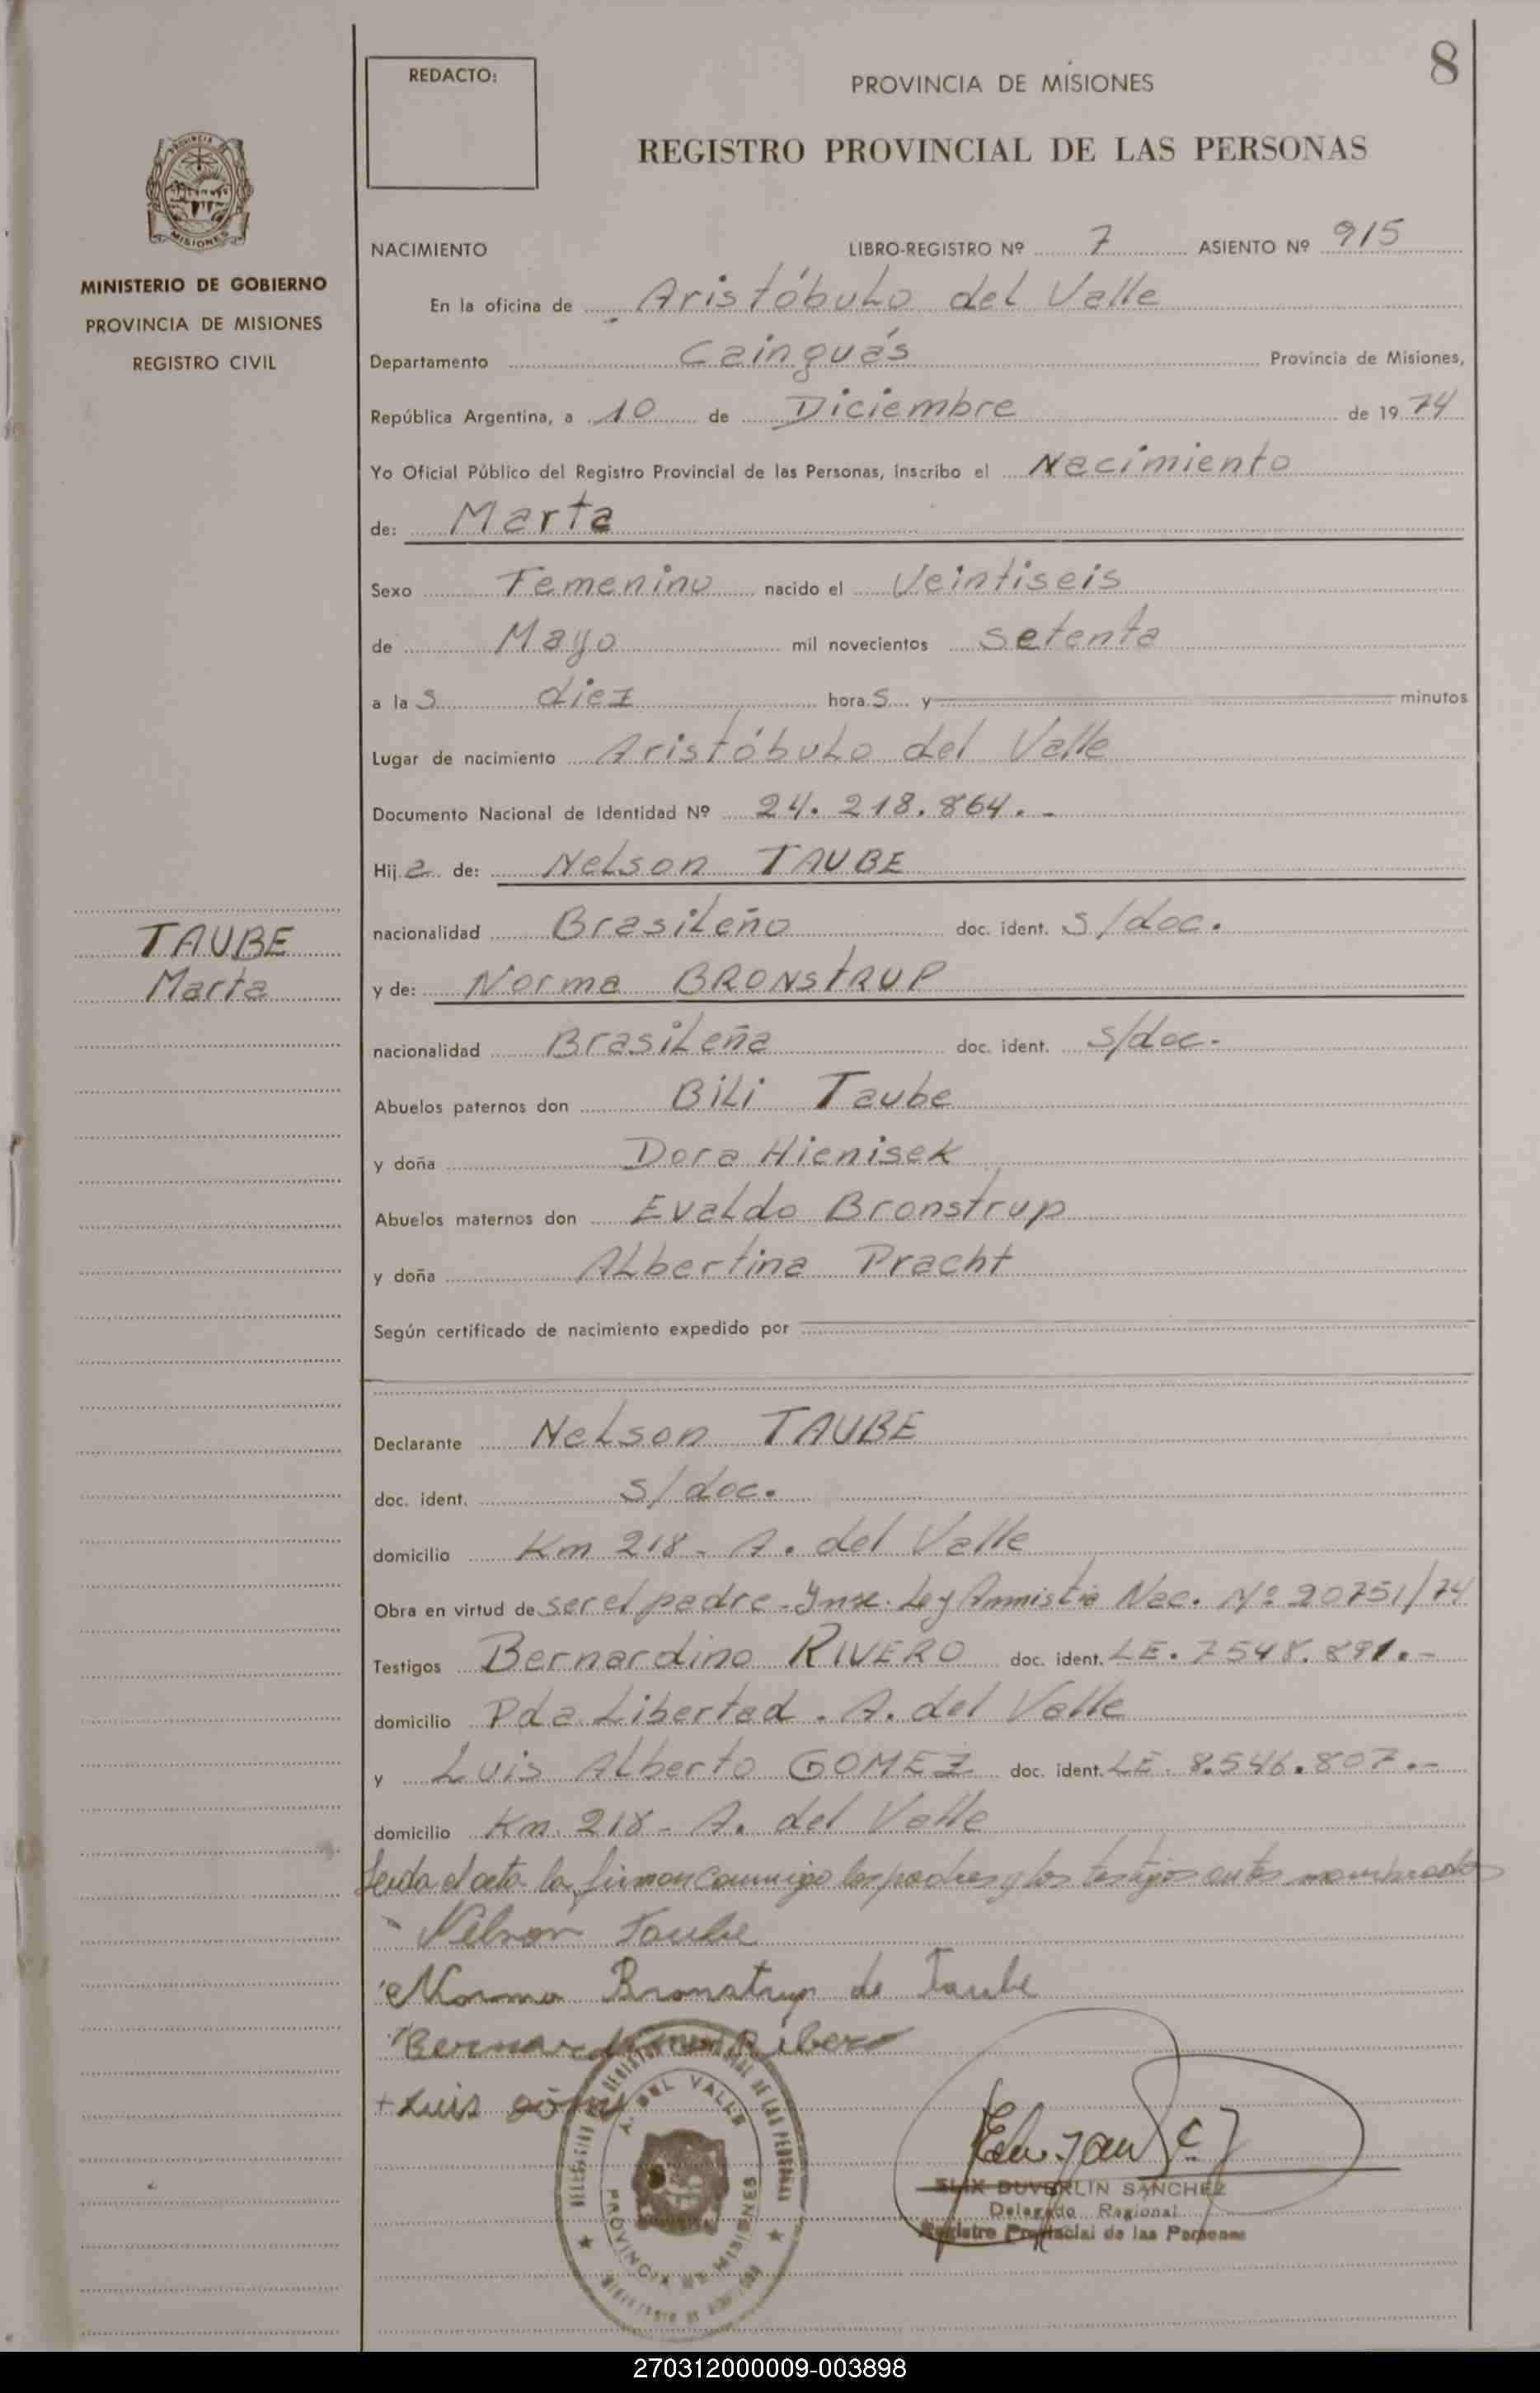 8
REDACTO:
PROVINCIA DE MISIONES
REGISTRO PROVINCIAL DE LAS PERSONAS
MISIONES
MINISTERIO DE GOBIERNO
PROVINCIA DE MISIONES
REGISTRO CIVIL
NACIMIENTO LIBRO-REGISTRO Nº 7 ASIENTO Nº 915
En la oficina de Aristóbulo del Valle
Departamento Cainguás Provincia de Misiones,
República Argentina, a 10 de Diciembre de 1974
Yo Oficial Público del Registro Provincial de las Personas, inscribo el Nacimiento
de: Marta
Sexo Femenino nacido el Veintiseis
de Mayo mil novecientos setenta
a las diez horas y minutos
Lugar de nacimiento Aristóbulo del Valle
Documento Nacional de Identidad Nº 24.218.864.-
Hija de: Nelson TAUBE
nacionalidad Brasileño doc. ident. S/doc.
TAUBE
Marta
y de: Norma BRONSTRUP
nacionalidad Brasileña doc. ident. s/doc.
Abuelos paternos don Bili Taube
y doña Dora Hienisek
Abuelos maternos don Evaldo Bronstrup
y doña Albertina Pracht
Según certificado de nacimiento expedido por
Declarante Nelson TAUBE
doc. ident. s/doc.
domicilio Km 218 - A. del Valle
Obra en virtud de ser el padre - Insc. Ley Amnistia Nac. Nº 20751/74
Testigos Bernardino RIVERO doc. ident. LE. 7548.891.-
domicilio Pda Libertad . A. del Valle
y Luis Alberto GOMEZ doc. ident. LE. 8.546.807.-
domicilio Km. 218 - A. del Valle
Leida el acta la firman conmigo los padres y los testigos antes nombrados
Nelson Taube
Norma Bronstrup de Taube
Bernardino Ribero
+ Luis
A. DEL VALLE
PROVINCIA DE MISIONES
DUVERLIN SANCHEZ
Delegado Regional
Registro Provincial de las Personas
270312000009-003898